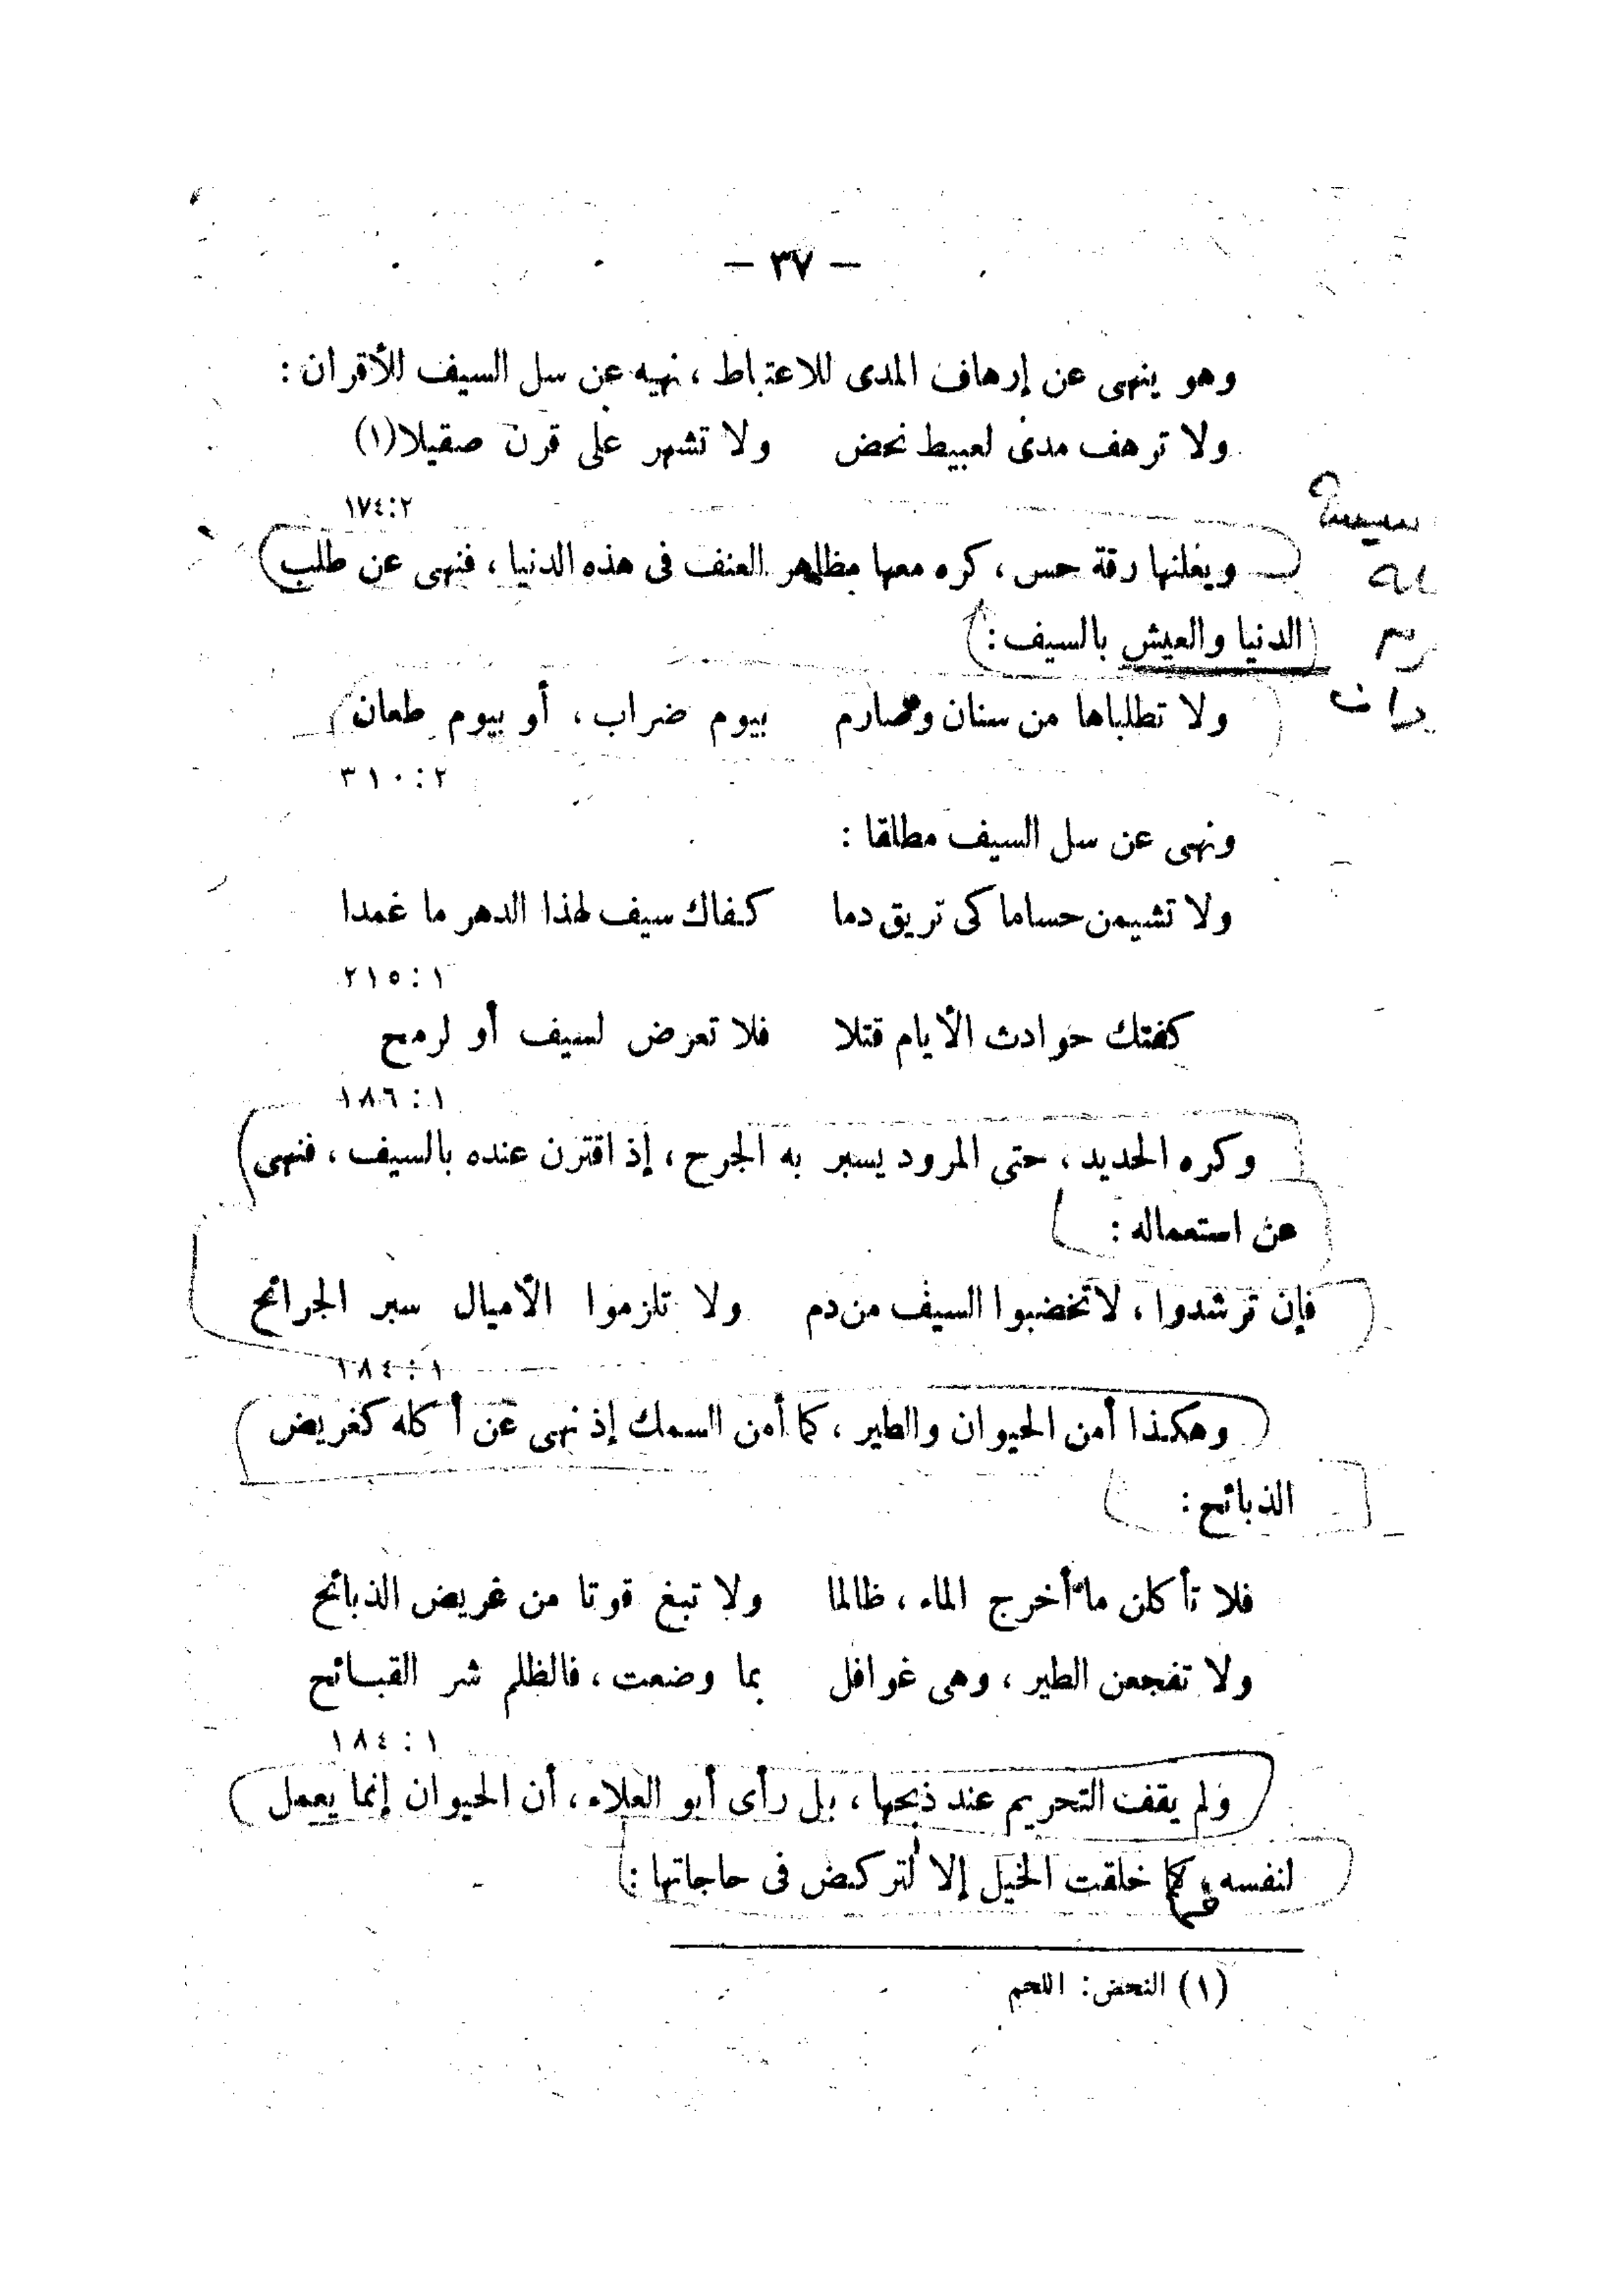 — ٣٧ —
وهو ينهى عن إرهاف المدى للاعتباط ، نهيه عن سل السيف للأقران :
ولا ترهف مدى لعبيط نحض ولا تشهر على قرن صقيلا(١)
١٧٤:٢
ويعلنها رقة حس ، كره معها مظاهر العنف فى هذه الدنيا ، فنهى عن طلب
الدنيا والعيش بالسيف :
ولا تطلباها من سنان وصارم بيوم ضراب ، أو بيوم طعان
٣١٠:٢
ونهى عن سل السيف مطلقا :
ولا تشيمن حساما كى تريق دما كفاك سيف لهذا الدهر ما غمدا
٢١٥:١
كفتك حوادث الأيام قتلا فلا تعرض لسيف أو لرمح
١٨٦:١
وكره الحديد ، حتى المرود يسبر به الجرح ، إذ اقترن عنده بالسيف ، فنهى
عن استعماله :
فإن ترشدوا ، لاتخضبوا السيف من دم ولا تلزموا الأميال سبر الجرائح
١٨٤:١
وهكذا أمن الحيوان والطير ، كما أمن السمك إذ نهى عن أكله كغريض
الذبائح :
فلا تأكلن ما أخرج الماء ، ظالما ولا تبغ قوتا من غريض الذبائح
ولا تفجعن الطير ، وهى غوافل بما وضعت ، فالظلم شر القبائح
١٨٤:١
ولم يقف التحريم عند ذبحها ، بل رأى أبو العلاء ، أن الحيوان إنما يعمل
لنفسه ، كما خلقت الخيل إلا لتركض فى حاجاتها :
(١) النحض : اللحم